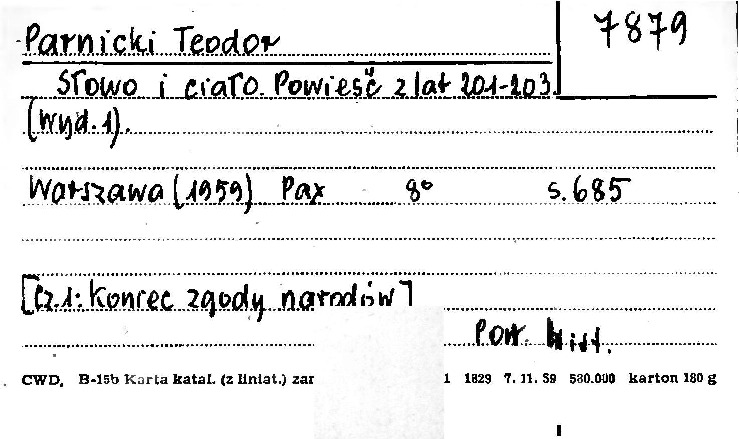 Parnicki Teodor
7879
Słowo i ciało. Powieść z lat 201-203.
(Wyd. 1).
Warszawa (1959) Pax 8° s. 685
[Cz. 1: Koniec zgody narodów]
Pow. hist.
CWD, B-15b Karta katal. (z liniat.) zar 1 1829 7.11.59 580.000 karton 180 g